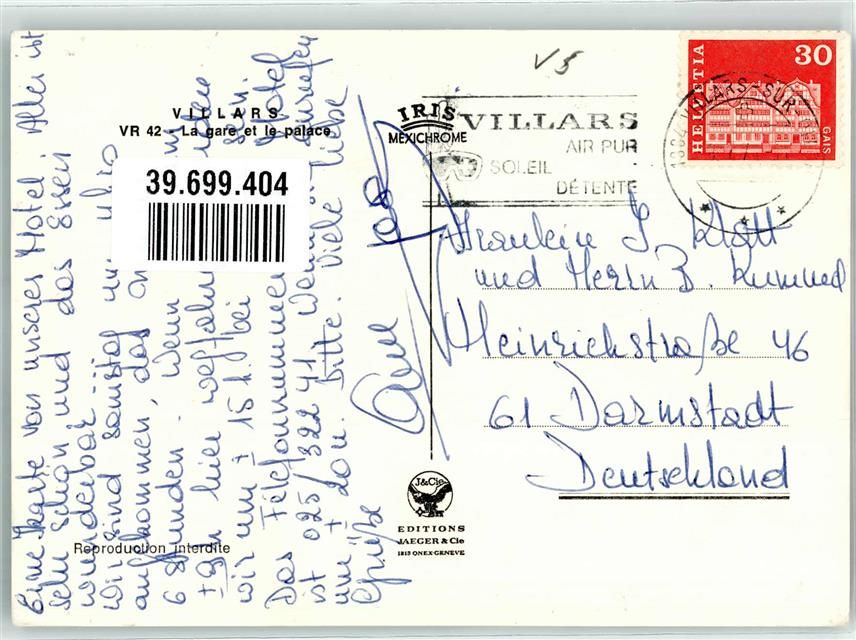 VILLARS
VR 42 - La gare et le palace
39.699.404
Eine Karte von unseres Hotel Alles ist
sehr schön und das Essen
wunderbar
wir sind samstag um
aufkommen, das
6 stunden. Wenn
hier wegfahren
wir um ± 15 h. bei
Das Telefonnummer Hotel
ist 025/322 41 Wenn anrufen
um ± 20u. Bitte. Viele liebe
Grüße
Reproduction interdite
IRIS
MEXICHROME
V5
VILLARS
AIR PUR
SOLEIL
DÉTENTE
1884 VILLARS-SUR-
HELVETIA
30
GAIS
Fräulein S. Klott
und Herrn B. Kummel
Heinrichstraße 46
61 Darmstadt
Deutschland
J&Cie
EDITIONS
JAEGER & Cie
1213 ONEX-GENEVE